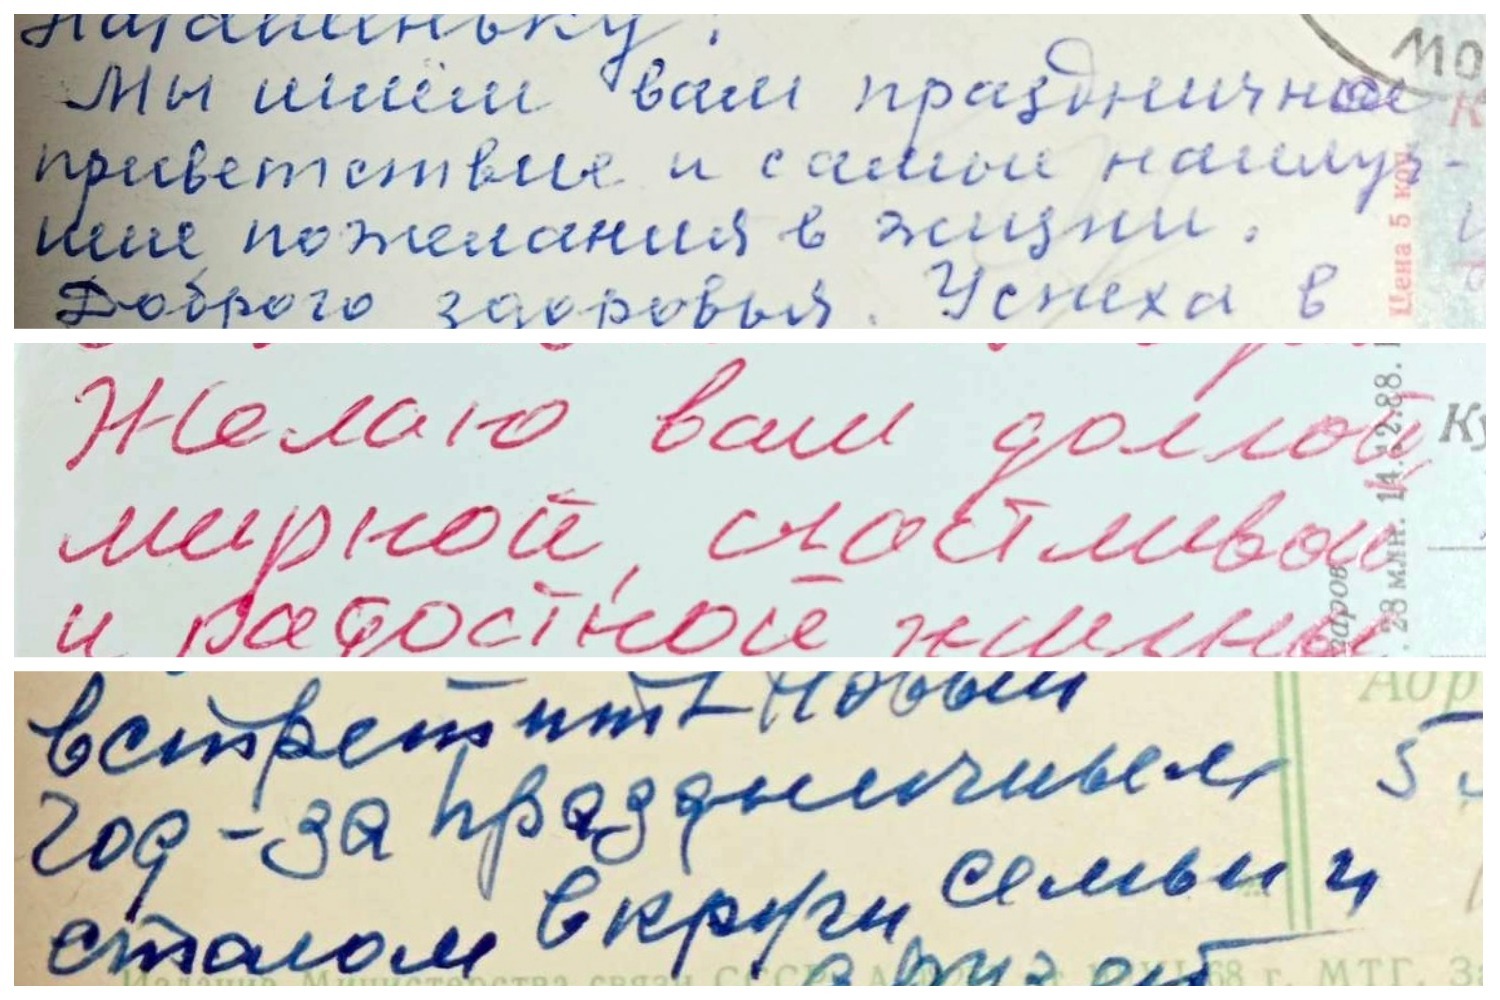 Наташеньку!
МО
Мы шлём вам праздничное
К
приветствие и самые наилуч-
шие пожелания в жизни.
Доброго здоровья. Успеха в
Цена 5 коп.
Желаю вам долгой
Ку
мирной, счастливой
и радостной жизни
28 млн. 14.12.88.
встретить Новый
Адр
год - за праздничным
5
столом в кругу семьи и
друзей
Издание Министерства связи СССР 68 г. МТГ. За